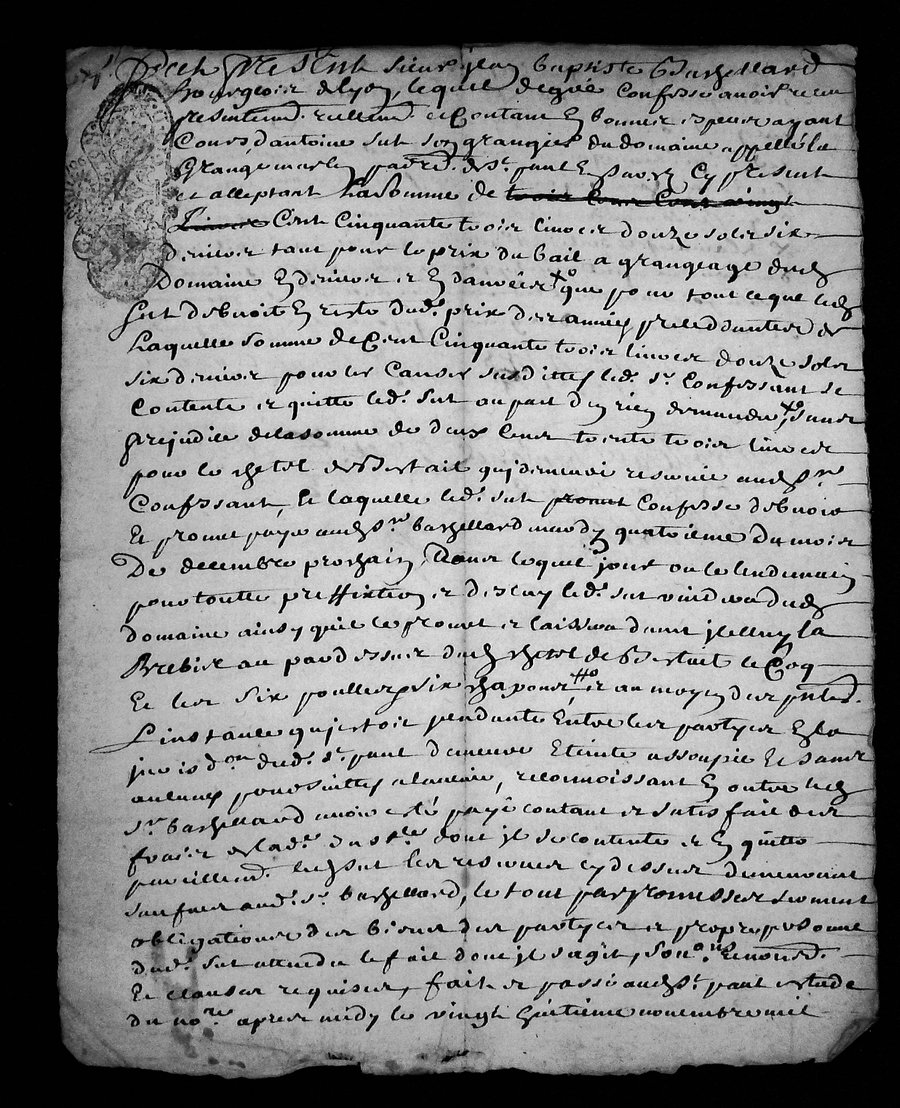 present sieur jean baptiste Bachellard
bourgeois de lyon, lequel de gré confesse avoir receu
presentemt. reellemt. et Contant En bonnes especes ayant
Cours d'antoine sut son grangier du domaine appellé la
Grange parr. de St. paul Cy present
et acceptant La Somme de trois Cens Cent vingt
Livres Cent Cinquante trois livres douze sols six
deniers tant pour le prix du bail a grangeage dud
Domaine En deniers et En danrées que pour tout ce que led
Sut debvoit En reste dud. prix des années precedantes de
Laquelle somme de Cent Cinquante trois livres douze sols
six deniers pour les Causes susdittes led. Sr. Confessant se
Contente et quitte led. Sut au pact d'en rien demander sans
prejudice de la somme de deux Cens trente trois livres
pour le chetel de Bestail qui demeure reservée aud Sr.
Confessant, et laquelle led. sut promet Confesse debvoir
Et promet payer aud Sr. bachellard quatrième du mois
De decembre prochain, dans lequel jour ou le lendemain
pour toutte preffixtion et deslay led. Sut vuidera dud
domaine ainsy qu'il le promet et laissera dans icelluy la
Brebis au par dessus dud chetel de Bestail le Coq
Et les six poulles six chapons et au moyen des pntes.
L'instance qui estoit pendante Entre les partyes En la
jurisdon. dud. St. paul demeure Eteinte assoupie Et sans
aucunes poursuittes a l'avenir, reconnoissant En outre led
Sr. bachellard avoir esté payé contant et satisfait des
fraix de lad. instce. dont il se contente et En quitte
pareillemt. led Sut les reserves cy dessus demeurant
sauves aud. Sr. bachellard, le tout par promesses serment
obligations des biens des partyes et propre personne
dud. Sut attendu le fait dont il s'agit, Son. Renond.
Et clauses requises, fait et passé aud St. paul estude
du nore. apres midy le vingt huitieme novembre mil